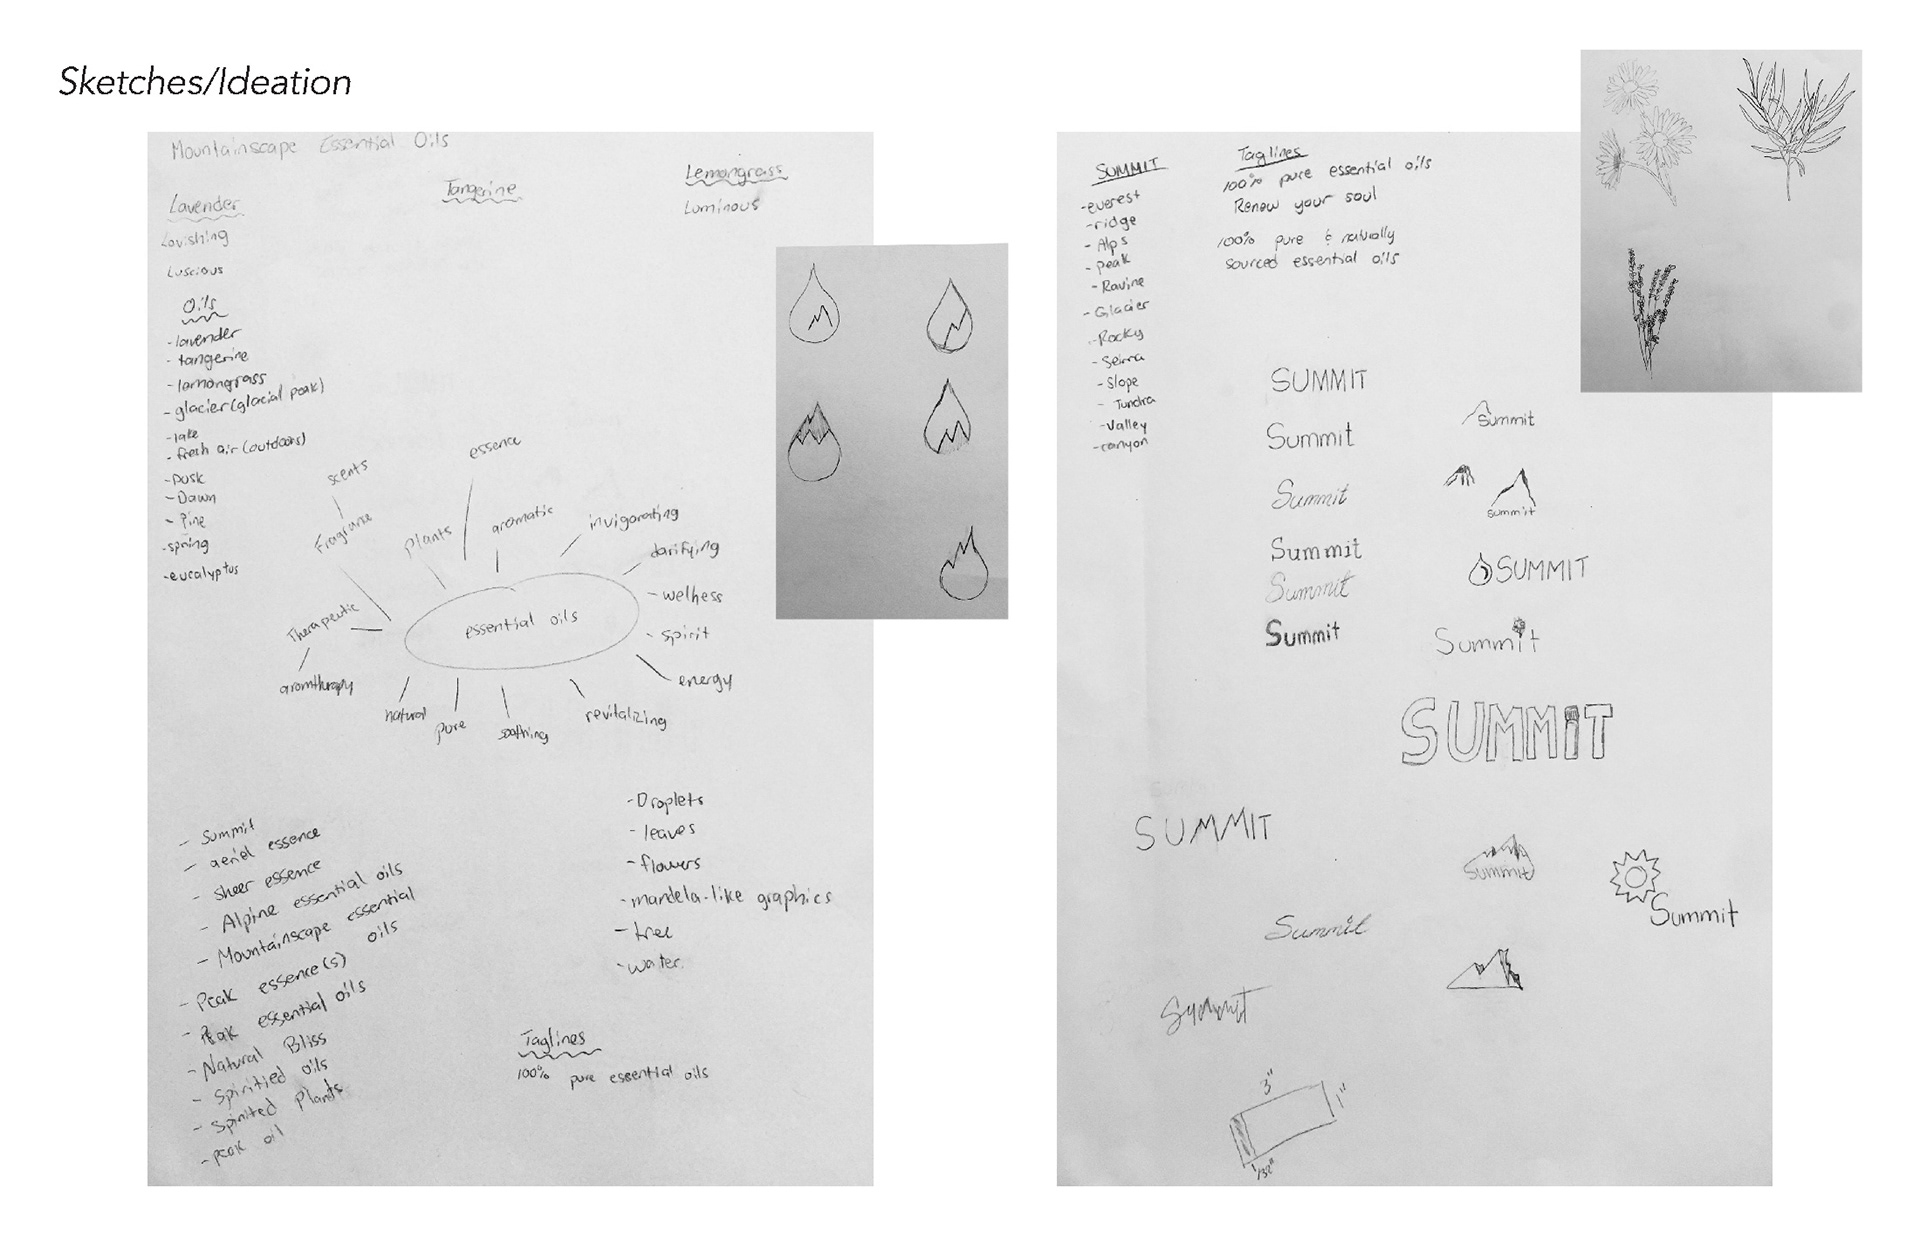 Sketches/Ideation
Mountainscape Essential Oils
Lavender
Lavishing
Luscious
Tangerine
Lemongrass
Luminous
Oils
-lavender
- tangerine
-lemongrass
-glacier (glacial peak)
-lake
- fresh air (outdoors)
-Dusk
-Dawn
- Pine
-spring
-eucalyptus
scents
Fragrance
plants
essence
aromatic
invigorating
clarifying
- wellness
- spirit
energy
revitalizing
soothing
pure
natural
Therapeutic
aromtherapy
essential oils
- Summit
- aeriel essence
- sheer essence
- Alpine essential oils
- Mountainscape essential
oils
- Peak essence(s)
- Peak essential oils
- Natural Bliss
- Spiritied oils
- Spirited Plants
- peak oil
-Droplets
- leaves
- flowers
-mandela-like graphics
- tree
-water
Taglines
100% pure essential oils
SUMMIT
-everest
-ridge
- Alps
- peak
- Ravine
- Glacier
- Rocky
- Seirra
- Slope
- Tundra
- Valley
-canyon
Taglines
100% pure essential oils
Renew your soul
100% pure & naturally
sourced essential oils
SUMMIT
Summit
Summit
Summit
Summit
Summit
Summit
Summit
SUMMIT
Summit
SUMMiT
SUMMIT
Summit
Summit
Summit
Summit
3"
1"